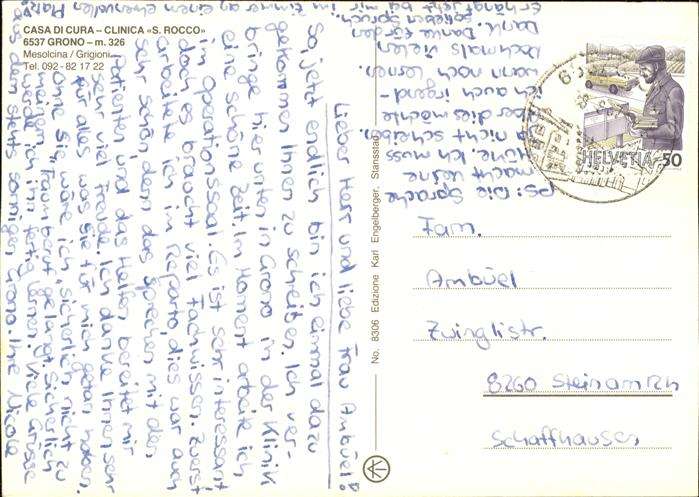 CASA DI CURA – CLINICA «S. ROCCO»
6537 GRONO – m. 326
Mesolcina / Grigioni
Tel. 092 - 82 17 22
Lieber Herr und liebe Frau Ambüel!
So, jetzt endlich bin ich einmal dazu
gekommen Ihnen zu schreiben. Ich ver-
bringe hier unten in Grono in der Klinik
eine schöne Zeit. Im Moment arbeite ich
im Operationssaal. Es ist sehr interessant
doch es braucht viel Fachwissen. Zuerst
arbeitete ich im Reparto, dies war auch
sehr schön, denn das Sprechen mit den
Patienten und das Helfen bereitet mir
sehr viel Freude. Ich danke Ihnen sehr
für alles was sie für mich getan haben.
Ohne Sie, wäre ich, sicherlich nicht zu
meinem Traumberuf gelangt. Sicherlich
werde ich ihn fertig lernen. Viele Grüsse
aus dem stets sonnigen Grono Ihre Nicole
PS: Die Sprache
macht keine
Mühe. Ich muss
ja nicht schreiben.
Aber dies möchte
ich auch irgend-
wann noch lernen.
Nochmals vielen
Dank. Danke für den
schönen Spruch.
Er hängt jetzt bei mir im Zimmer an einem ehrenvollen Platz!
No. 8306 Edizione Karl Engelberger, Stansstad
HELVETIA 50
Fam.
Ambüel
Zwinglistr.
8260 Stein am Rh
Schaffhausen